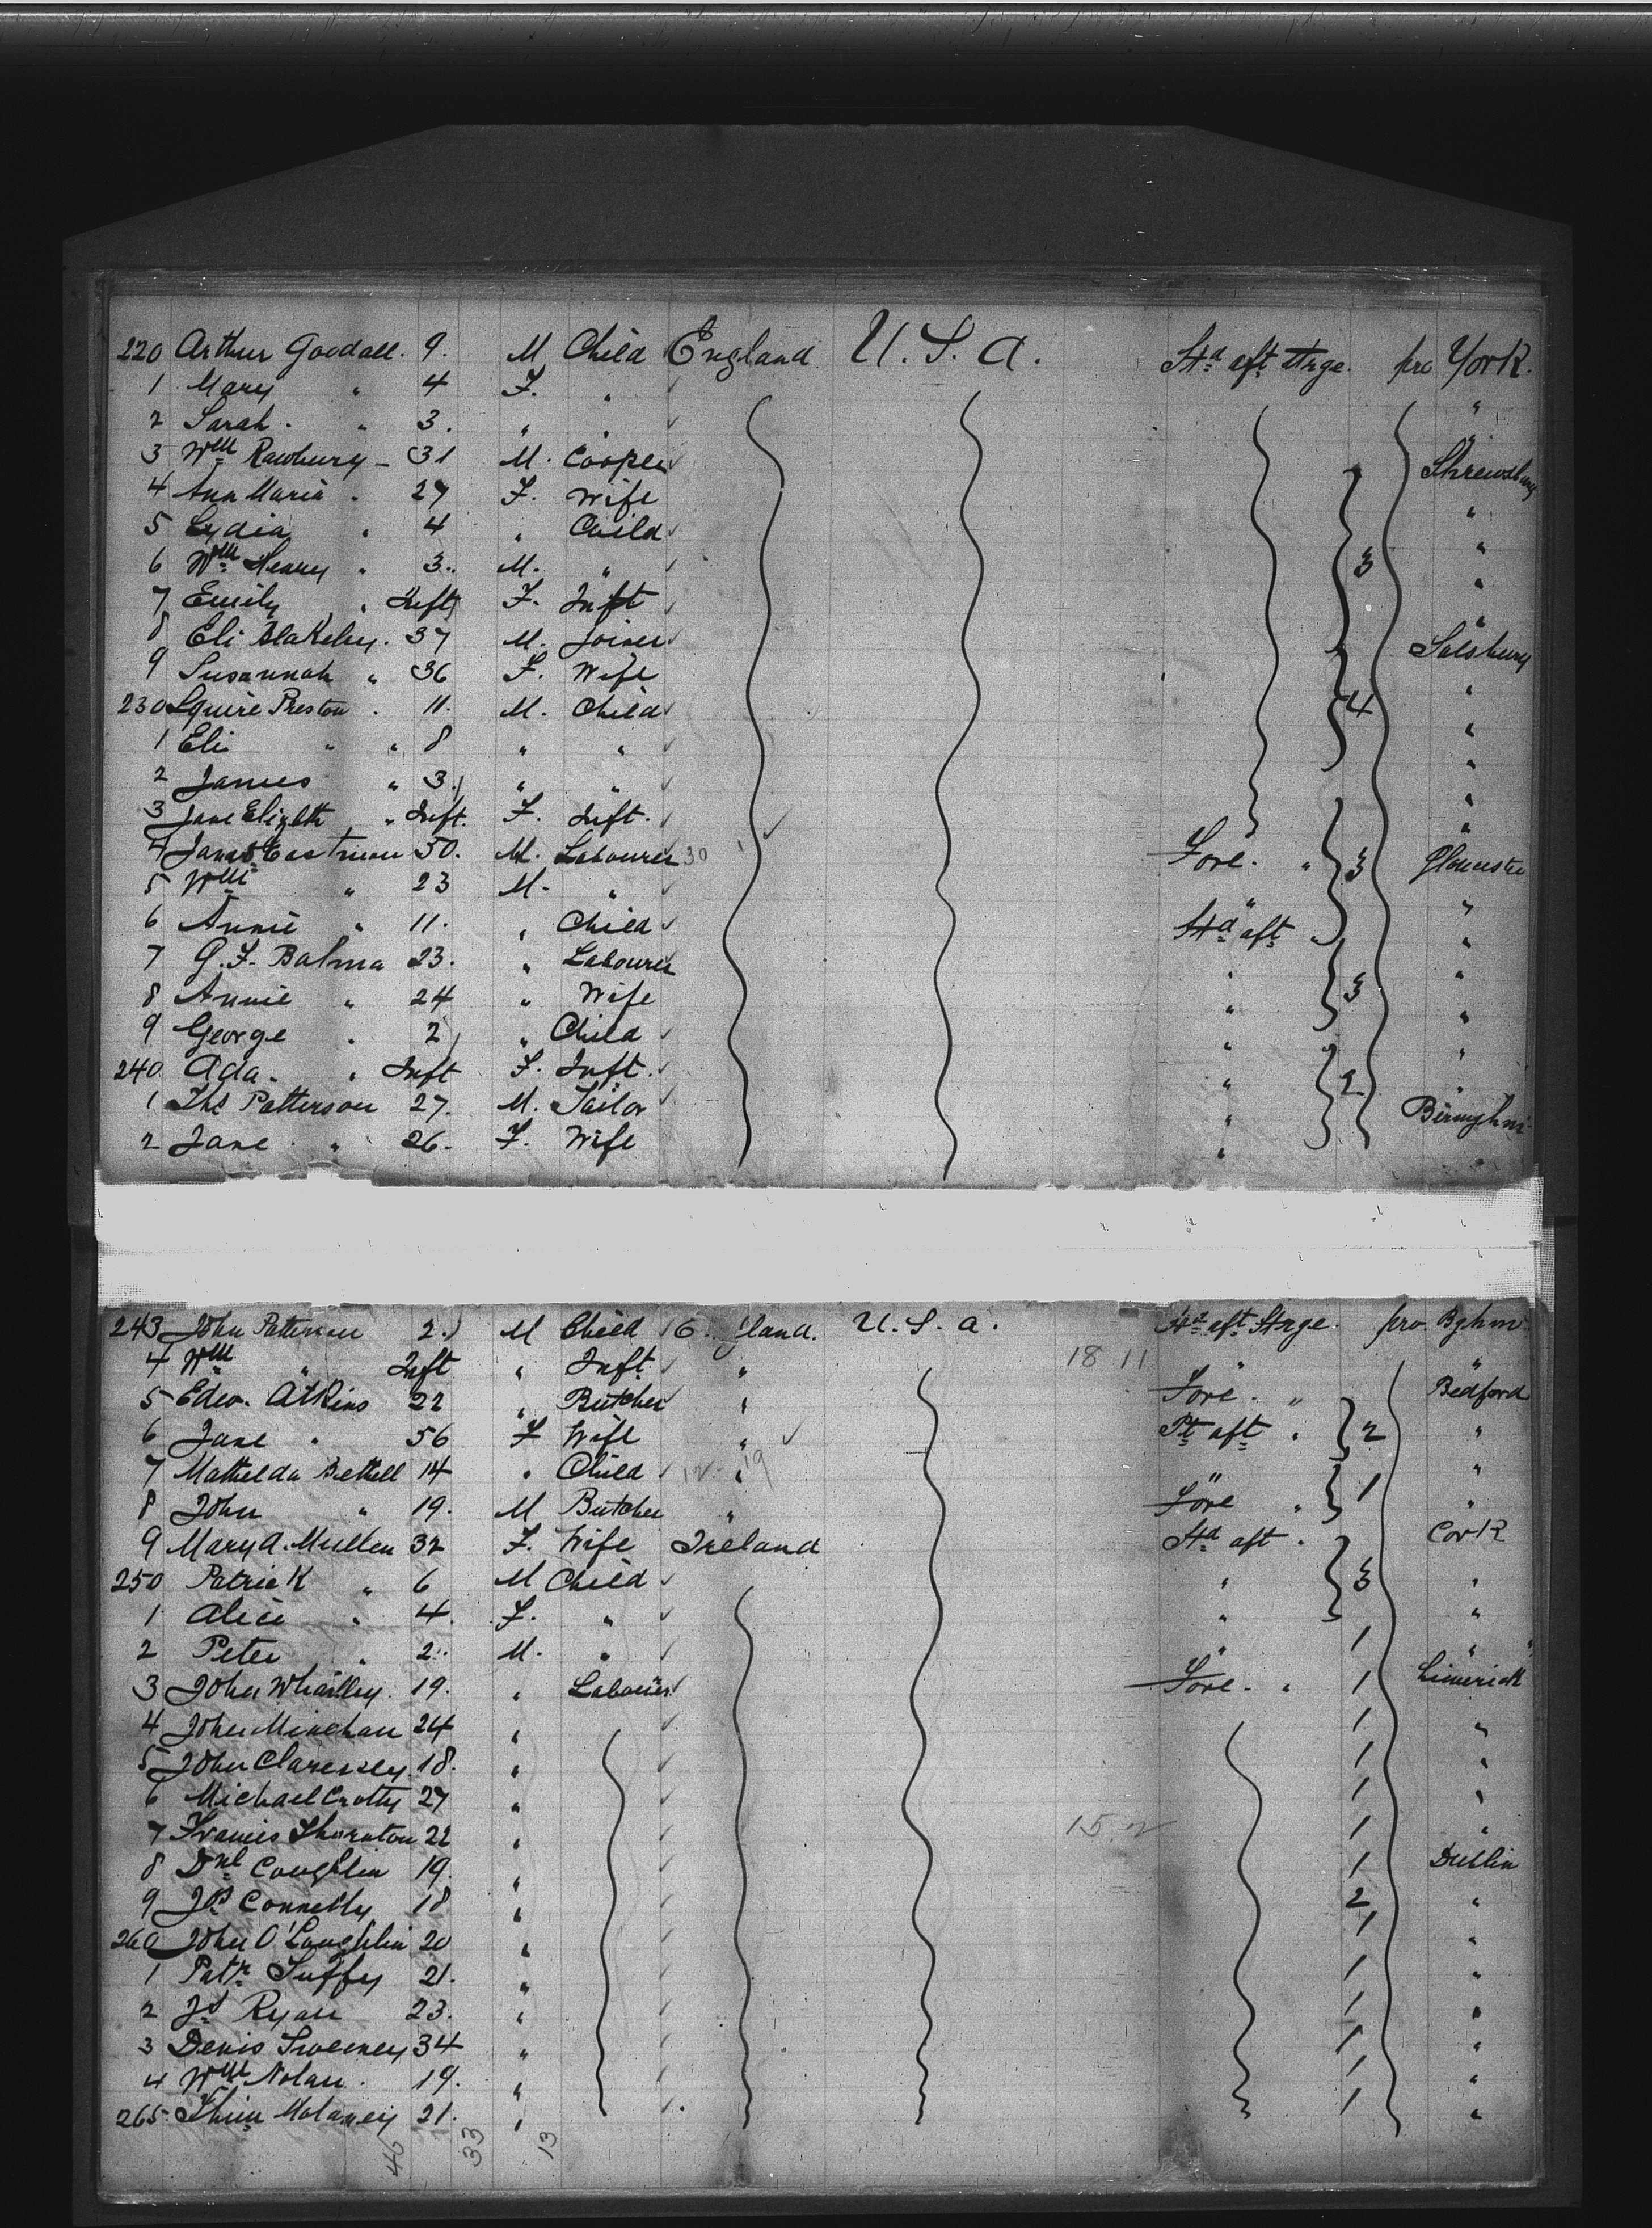 220 Arthur Goodall. 9. M Child England U.S.A. Stᵈ aft Strge. pro York.
1 Mary " 4 F. " "
2 Sarah. " 3. " " "
3 Wᵐ Rawbury - 31 M. Cooper Shrewsbury
4 Ann Maria " 27 F. Wife "
5 Lydia " 4 " Child "
6 Wᵐ Henry " 3. M. " 3 "
7 Emily " Inft F. Inft "
8 Eli Blakeley. 37 M. Joiner Salsbury
9 Susannah " 36 F. Wife "
230 Squire Preston " 11. M. Child 4 "
1 Eli " " 8 " " "
2 James " 3 " " "
3 Jane Elizbth " Inft. F. Inft. "
4 James Eastman 50. M. Labourer 30 Fore. " 3 Gloucester
5 Wᵐ " 23 M. " " "
6 Annie " 11. " Child Stᵈ aft " "
7 G.F. Balma 23. " Labourer " "
8 Annie " 24 " Wife " 3 "
9 George " 2 " Child " "
240 Ada. " Inft F. Inft. " 2 "
1 Thˢ Patterson 27. M. Tailor " Birmghm
2 Jane " 26. F. Wife "
243 John Patterson 2. M Child land. U.S.A. Stᵈ aft Strge. pro. Bghm
4 Wᵐ " Inft " Inft " 18 11 " "
5 Edw. Atkins 22 " Butcher " Fore. " Bedford
6 Jane " 56 F Wife " Pt aft " 2 "
7 Mathelda Bethell 14 " Child " 19 " 1 "
8 John " 19. M Butcher " Fore " "
9 Mary A. Mullen 32 F. Wife Ireland Stᵈ aft " Cork
250 Patrick " 6 M Child " 3 "
1 Alice " 4. F. " " "
2 Peter " 2. M. " " 1 "
3 John Whailley. 19. " Labourer Fore. " 1 Limerick
4 John Minehan 24 " 1 "
5 John Claressey. 18. " 1 "
6 Michael Crotty 27 " 1 "
7 Francis Thornton 22 " 15.2 1 "
8 Dⁿˡ Coughlin 19. " 1 Dublin
9 Jˢ Connelly 18 " 2 "
260 John O'Loughlin 20 " 1 "
1 Patᵏ Tuffy 21. " 1 "
2 Jˢ Ryan 23. " 1 "
3 Denis Sweeney 34 " 1 "
4 Wᵐ Nolan. 19. " 1 "
265 Molaney 21. " 1 "
46 33 13